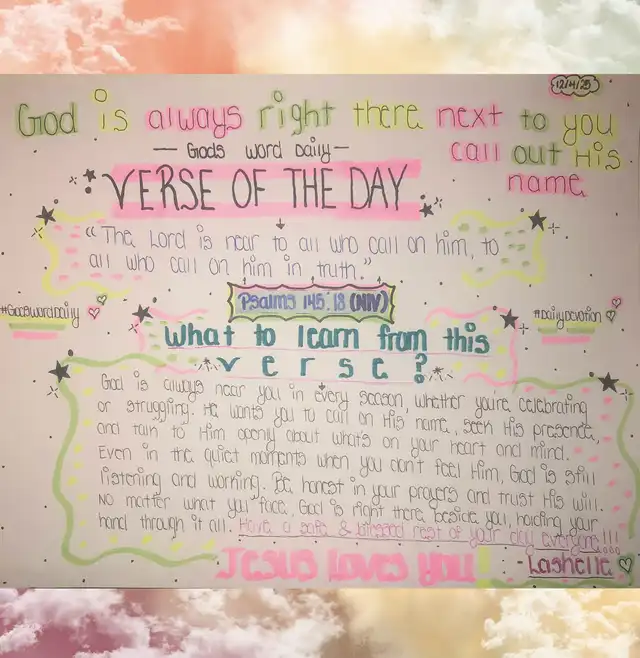 12/4/25
God is always right there next to you
call out His
name
— Gods word Daily —
VERSE OF THE DAY
"The Lord is near to all who call on him, to
all who call on him in truth."
Psalms 145:18 (NIV)
#GodswordDaily
#DailyDevotion
What to learn from this
verse?
God is always near you in every season, whether you're celebrating
or struggling. He wants you to call on His name, seek His presence,
and talk to Him openly about what's on your heart and mind.
Even in the quiet moments when you don't feel Him, God is still
listening and working. Be honest in your prayers and trust His will.
No matter what you face, God is right there beside you, holding your
hand through it all. Have a safe & blessed rest of your day everyone!!!
Jesus loves you
- Lashelle